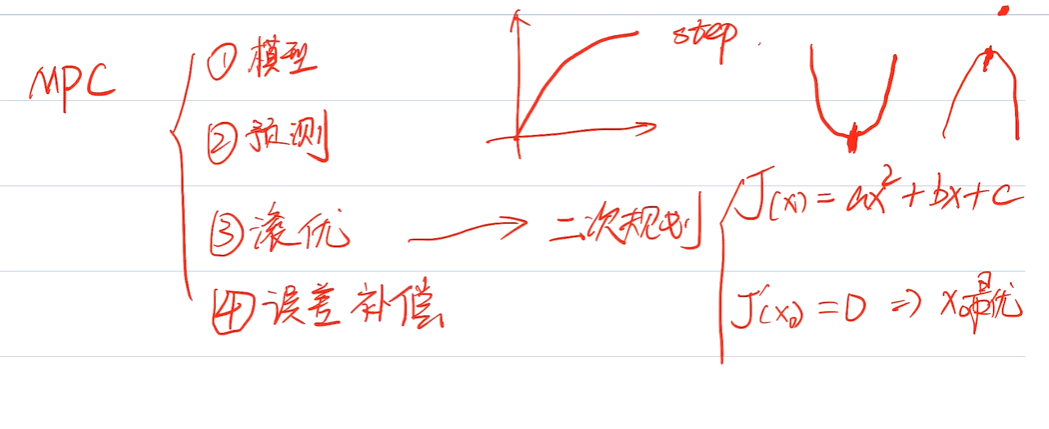 MPC
① 模型
② 预测
③ 滚优
④ 误差补偿
step.
二次规划
J(x) = ax² + bx + c
J'(x₀) = 0 ⇒ x₀最优